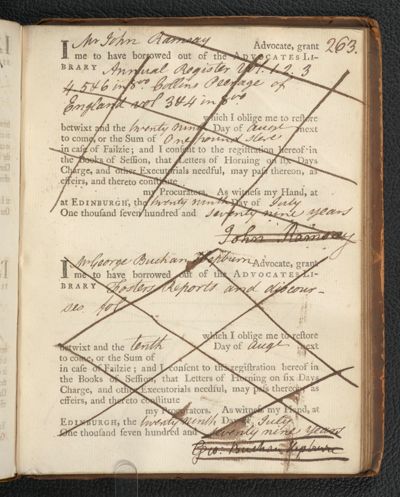 263.
I Mr John Ramsay Advocate, grant
me to have borrowed out of the ADVOCATES LI-
BRARY Annual Register Vol. 1. 2. 3
4 5 & 6 in 8vo Collins Peerage of
England vol 3 & 4 in 8vo
which I oblige me to reſtore
betwixt and the twenty ninth Day of augt next
to come, or the Sum of One pound Ster:
in caſe of Failzie; and I conſent to the regiſtration hereof in
the Books of Seſſion, that Letters of Horning on ſix Days
Charge, and other Executorials needful, may paſs thereon, as
effeirs, and thereto conſtitute
my Procurators. As witneſs my Hand, at
at EDINBURGH, the twenty ninth Day of July
One thouſand ſeven hundred and seventy nine years
John Ramsay
I Mr George Buchan Hepburn Advocate, grant
me to have borrowed out of the ADVOCATES LI-
BRARY Fosters Reports and discour-
ses fol
which I oblige me to reſtore
betwixt and the tenth Day of augt next
to come, or the Sum of
in caſe of Failzie; and I conſent to the regiſtration hereof in
the Books of Seſſion, that Letters of Horning on ſix Days
Charge, and other Executorials needful, may paſs thereon, as
effeirs, and thereto conſtitute
my Procurators. As witneſs my Hand, at
EDINBURGH, the twenty ninth Day of July
One thouſand ſeven hundred and seventy nine years
Geo: Buchan Hepburn